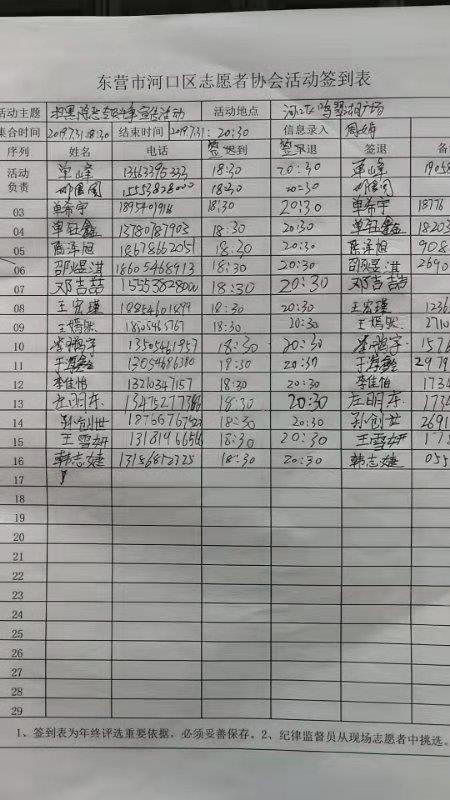 东营市河口区志愿者协会活动签到表
活动主题 宣传活动 活动地点 河口区鸣翠湖广场
集合时间 2019.7.31 18:30 结束时间 2019.7.31: 20:30 信息录入 周婷
序列 姓名 电话 签到 签退 签退 备
活动负责 单峰 18:30 20:30 单峰
15553828000 18:30 20:30
03 单希宇 18:30 20:30 单希宇 18776
04 单钰鑫 13780787903 18:30 20:30 单钰鑫 18203
05 陈泽旭 18678662051 18:30 20:30 陈泽旭 908
06 邵煜淇 18605468913 18:30 20:30 邵煜淇 2690
07 邓吉喆 15553828000 18:30 20:30 邓吉喆
08 王宏瑾 18854601899 18:30 20:30 王宏瑾 1236
09 王嫣然 18:30 20:30 王嫣然 2710
10 李鹏宇 13505461957 18:30 20:30 李鹏宇 1576
11 于海鑫 13054686380 18:30 20:30 于海鑫 2979
12 李佳怡 13210347157 18:30 20:30 李佳怡 1734
13 左明东 18:30 20:30 左明东 1734
14 孙创世 18:30 20:30 孙创世 2691
15 王雪妍 18:30 20:30 王雪妍 175
16 韩志婕 13156872725 18:30 20:30 韩志婕 055
17
18
19
20
21
22
23
24
25
26
27
28
29
1、签到表为年终评选重要依据，必须妥善保存。2、纪律监督员从现场志愿者中挑选。